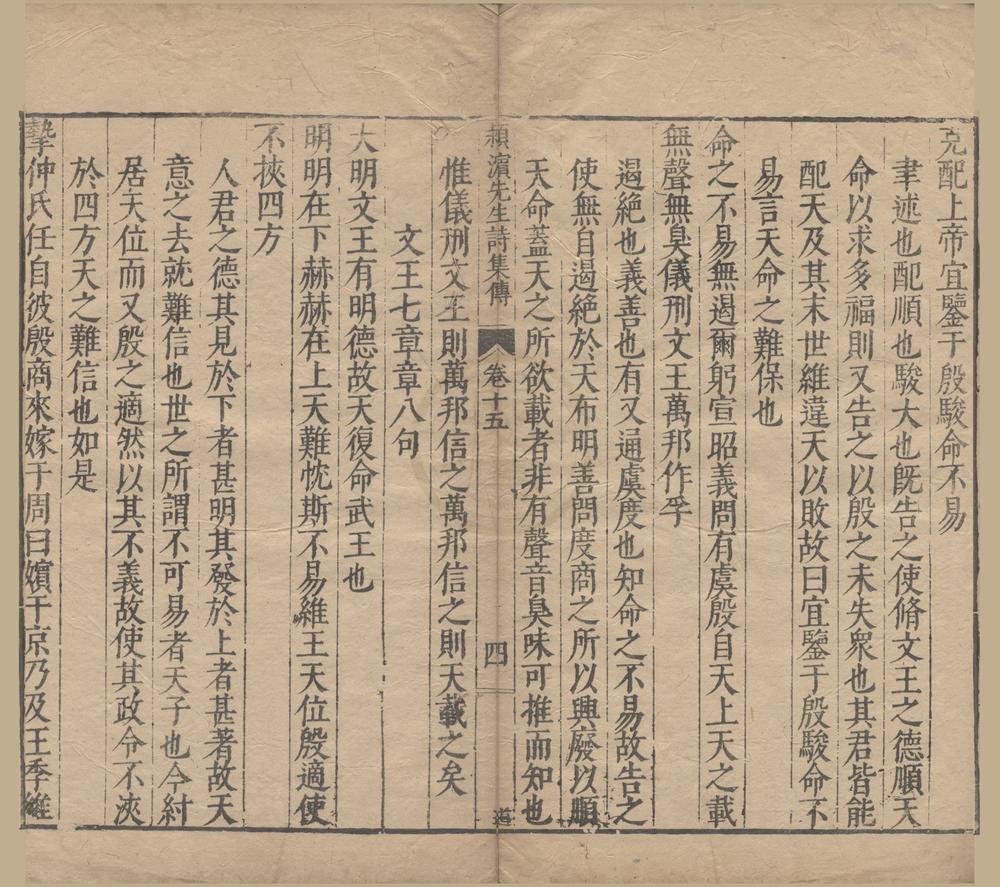 克配上帝宜鑒于殷駿命不易
聿述也配順也駿大也既告之使脩文王之德順天
命以求多福則又告之以殷之未失衆也其君皆能
配天及其末世維違天以敗故曰宜鑒于殷駿命不
易言天命之難保也
命之不易無遏爾躬宣昭義問有虞殷自天上天之載
無聲無臭儀刑文王萬邦作孚
遏絶也義善也有又通虞度也知命之不易故告之
使無自遏絶於天布明善問度商之所以興廢以順
天命蓋天之所欲載者非有聲音臭味可推而知也
惟儀刑文王則萬邦信之萬邦信之則天載之矣
潁濱先生詩集傳 卷十五 四
文王七章章八句
大明文王有明德故天復命武王也
明明在下赫赫在上天難忱斯不易維王天位殷適使
不挾四方
人君之德其見於下者甚明其發於上者甚著故天
意之去就難信也世之所謂不可易者天子也今紂
居天位而又殷之適然以其不義故使其政令不浹
於四方天之難信也如是
摯仲氏任自彼殷商來嫁于周曰嬪于京乃及王季維